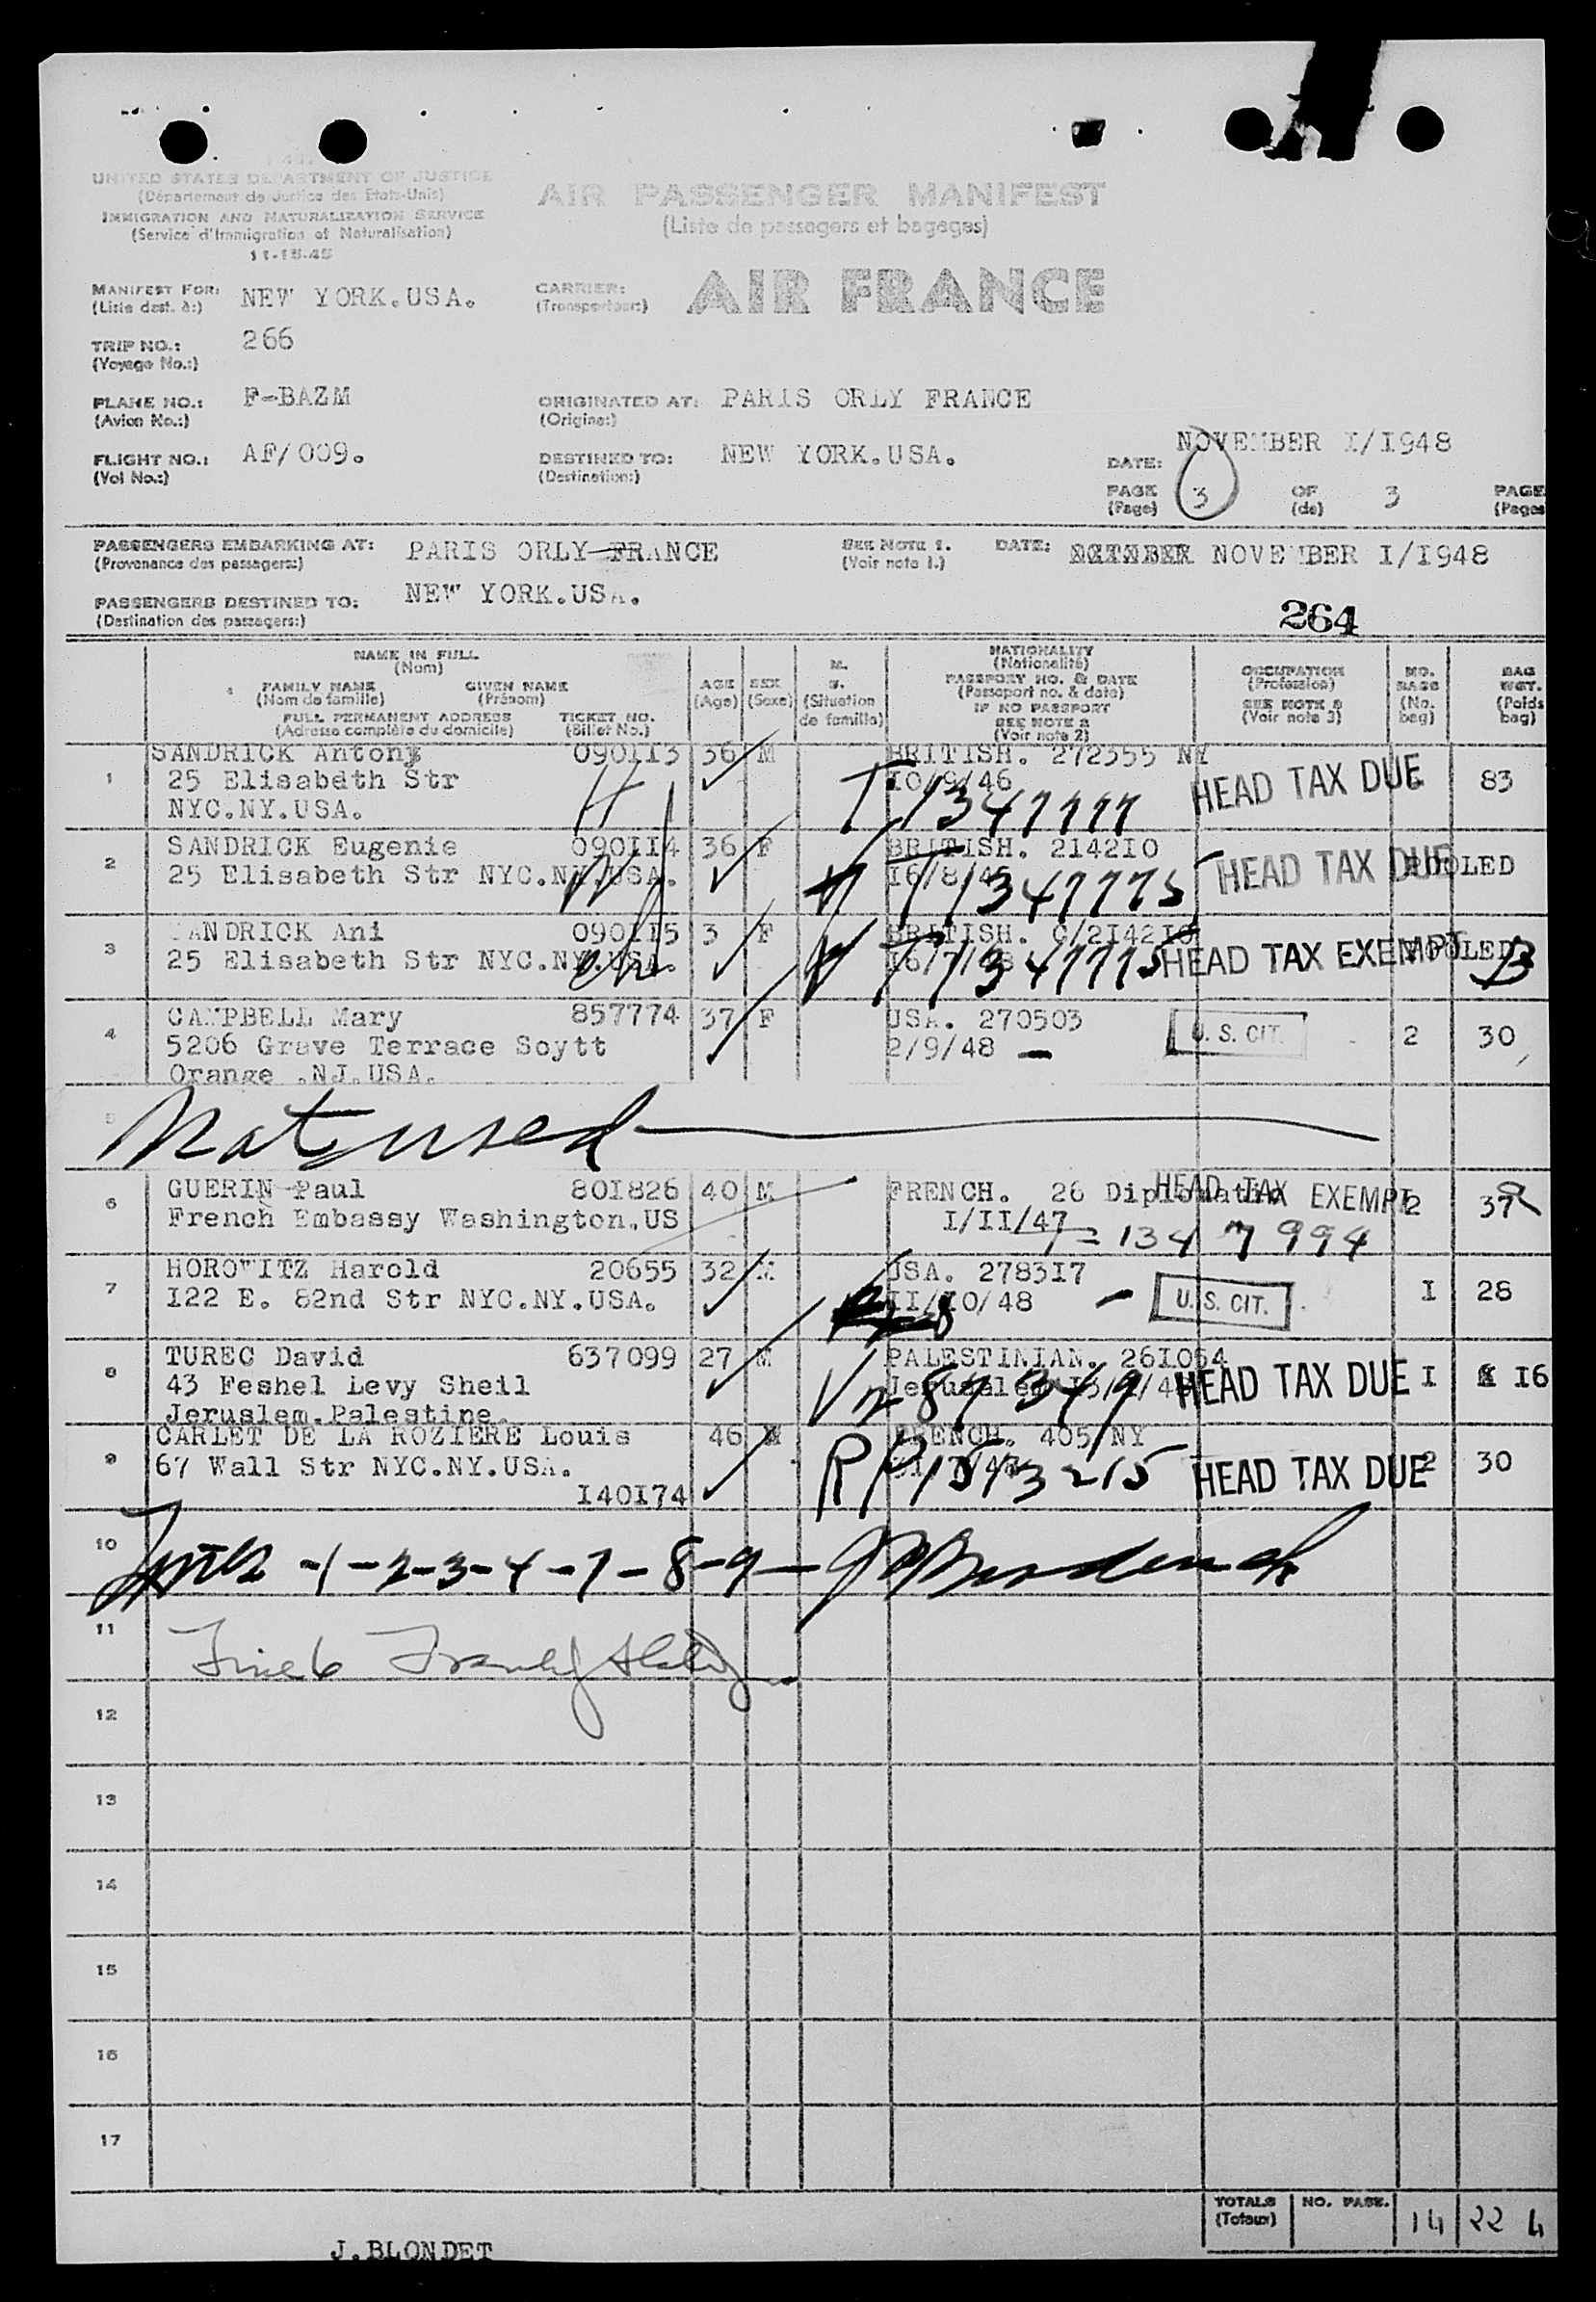 UNITED STATES DEPARTMENT OF JUSTICE
(Département de Justice des Etats-Unis)
IMMIGRATION AND NATURALIZATION SERVICE
(Service d'Immigration et Naturalisation)
11-15-45
AIR PASSENGER MANIFEST
(Liste de passagers et bagages)
MANIFEST FOR: NEW YORK.USA.
(Liste dest. à:)
CARRIER: AIR FRANCE
(Transporteur:)
TRIP NO.: 266
(Voyage No.:)
PLANE NO.: F-BAZM
(Avion No.:)
ORIGINATED AT: PARIS ORLY FRANCE
(Origine:)
FLIGHT NO.: AF/009.
(Vol No.:)
DESTINED TO: NEW YORK.USA.
(Destination:)
DATE: NOVEMBER I/I948
PAGE 3 OF 3 PAGE
(Page) (de) (Pages
PASSENGERS EMBARKING AT: PARIS ORLY FRANCE
(Provenance des passagers:)
SEE NOTE 1.
(Voir note 1.)
DATE: NOVEMBER I/I948
PASSENGERS DESTINED TO: NEW YORK.USA.
(Destination des passagers:)
264
NAME IN FULL
(Nom)
FAMILY NAME GIVEN NAME
(Nom de famille) (Prénom)
FULL PERMANENT ADDRESS TICKET NO.
(Adresse complète du domicile) (Billet No.)
AGE
(Age)
SEX
(Sexe)
M.
S.
(Situation
de famille)
NATIONALITY
(Nationalité)
PASSPORT NO. & DATE
(Passeport no. & date)
IF NO PASSPORT
SEE NOTE 2
(Voir note 2)
OCCUPATION
(Profession)
SEE NOTE 3
(Voir note 3)
NO.
BAGS
(No.
bag)
BAG
WGT.
(Poids
bag)
1 SANDRICK Antony 090II3 36 M BRITISH. 272355 NY
25 Elisabeth Str I0/9/46 HEAD TAX DUE 83
NYC.NY.USA. T 1347777
2 SANDRICK Eugenie 090II4 36 F BRITISH. 2I42I0
25 Elisabeth Str NYC.NY.USA. I6/8/45 HEAD TAX DUE POOLED
T 1347775
3 SANDRICK Ani 090II5 3 F BRITISH. C/2I42I0
25 Elisabeth Str NYC.NY.USA. HEAD TAX EXEMPT POOLED
T 1347775
4 CAMPBELL Mary 857774 37 F USA. 270503
5206 Grave Terrace Soytt 2/9/48 — U. S. CIT. 2 30
Orange .NJ.USA.
5 Not used
6 GUERIN Paul 80I826 40 M FRENCH. 26 Diplomatic HEAD TAX EXEMPT 2 37
French Embassy Washington.US I/II/47
1347994
7 HOROWITZ Harold 20655 32 M USA. 2783I7
I22 E. 82nd Str NYC.NY.USA. II/I0/48 — U. S. CIT. I 28
8 TUREC David 637099 27 M PALESTINIAN. 26I054
43 Feshel Levy Sheil Jerusalem HEAD TAX DUE I I6
Jeruslem.Palestine.
9 CARLET DE LA ROZIERE Louis 46 M FRENCH. 405 NY
67 Wall Str NYC.NY.USA. HEAD TAX DUE 2 30
I40I74
RP 1513215
10 Lines -1-2-3-4-7-8-9-
11 Line 6
12
13
14
15
16
17
TOTALS
(Totaux)
NO. PASS.
14 224
J.BLONDET